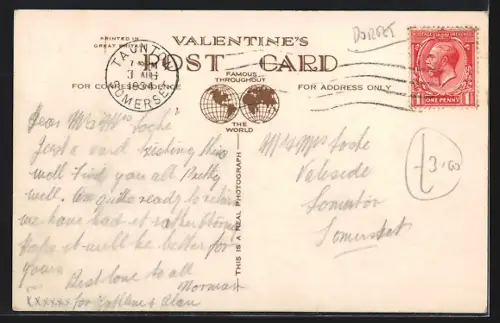 PRINTED IN
GREAT BRITAIN
VALENTINE'S
DORSET
POST CARD
FAMOUS
THROUGHOUT
THE
WORLD
FOR CORRESPONDENCE
FOR ADDRESS ONLY
TAUNTON
1934
SOMERSET
POSTAGE REVENUE
ONE PENNY
Dear Mr & Mrs
Just a card hoping this
will find you all pretty
well. Am quite ready to return
we have had it rather
hope it will be better for
yours
Best love to all
Norman
xxxxxx for & Alan
Mr & Mrs
Valeside
Somerton
Somerset
£3.00
THIS IS A REAL PHOTOGRAPH